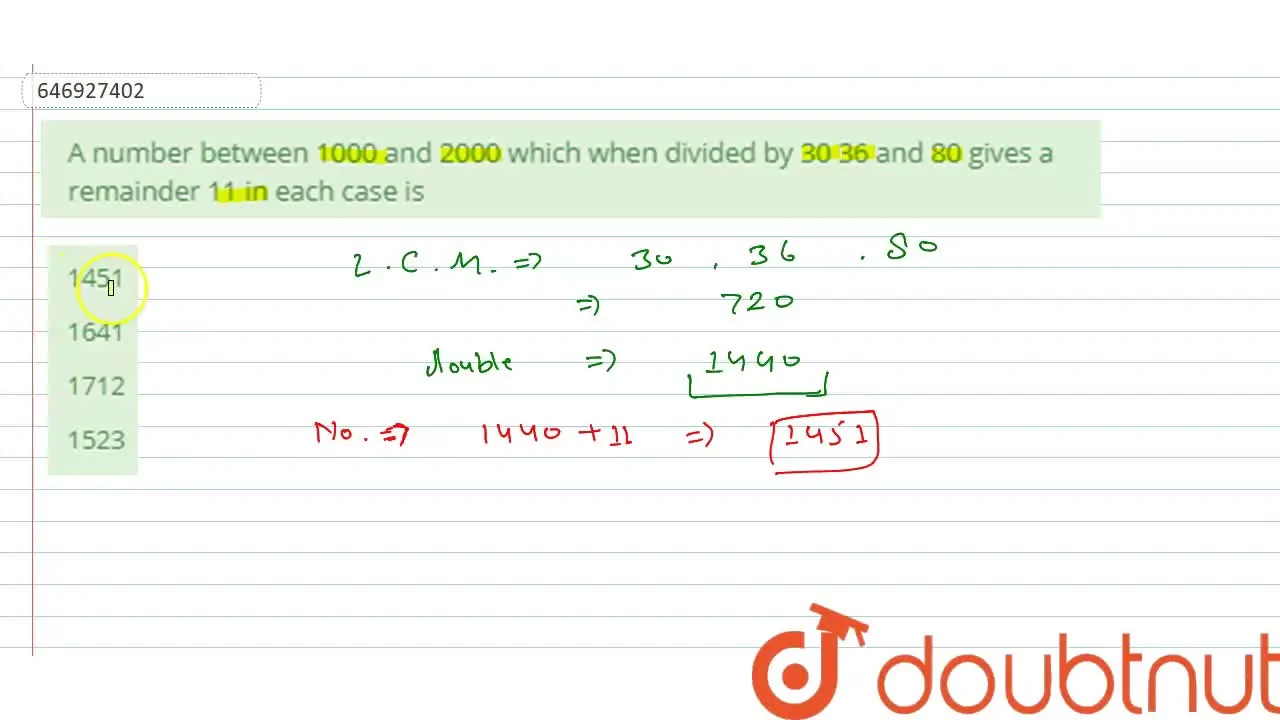 646927402
A number between 1000 and 2000 which when divided by 30 36 and 80 gives a
remainder 11 in each case is
1451
1641
1712
1523
L.C.M. => 30, 36, 80
=> 720
double => 1440
No. => 1440 + 11 => 1451
doubtnut